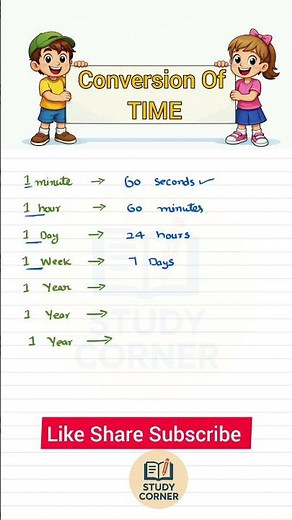 Conversion Of
TIME
1 minute → 60 seconds ✓
1 hour → 60 minutes
1 Day → 24 hours
1 Week → 7 Days
1 Year →
1 Year →
1 Year →
STUDY
CORNER
Like Share Subscribe
STUDY
CORNER